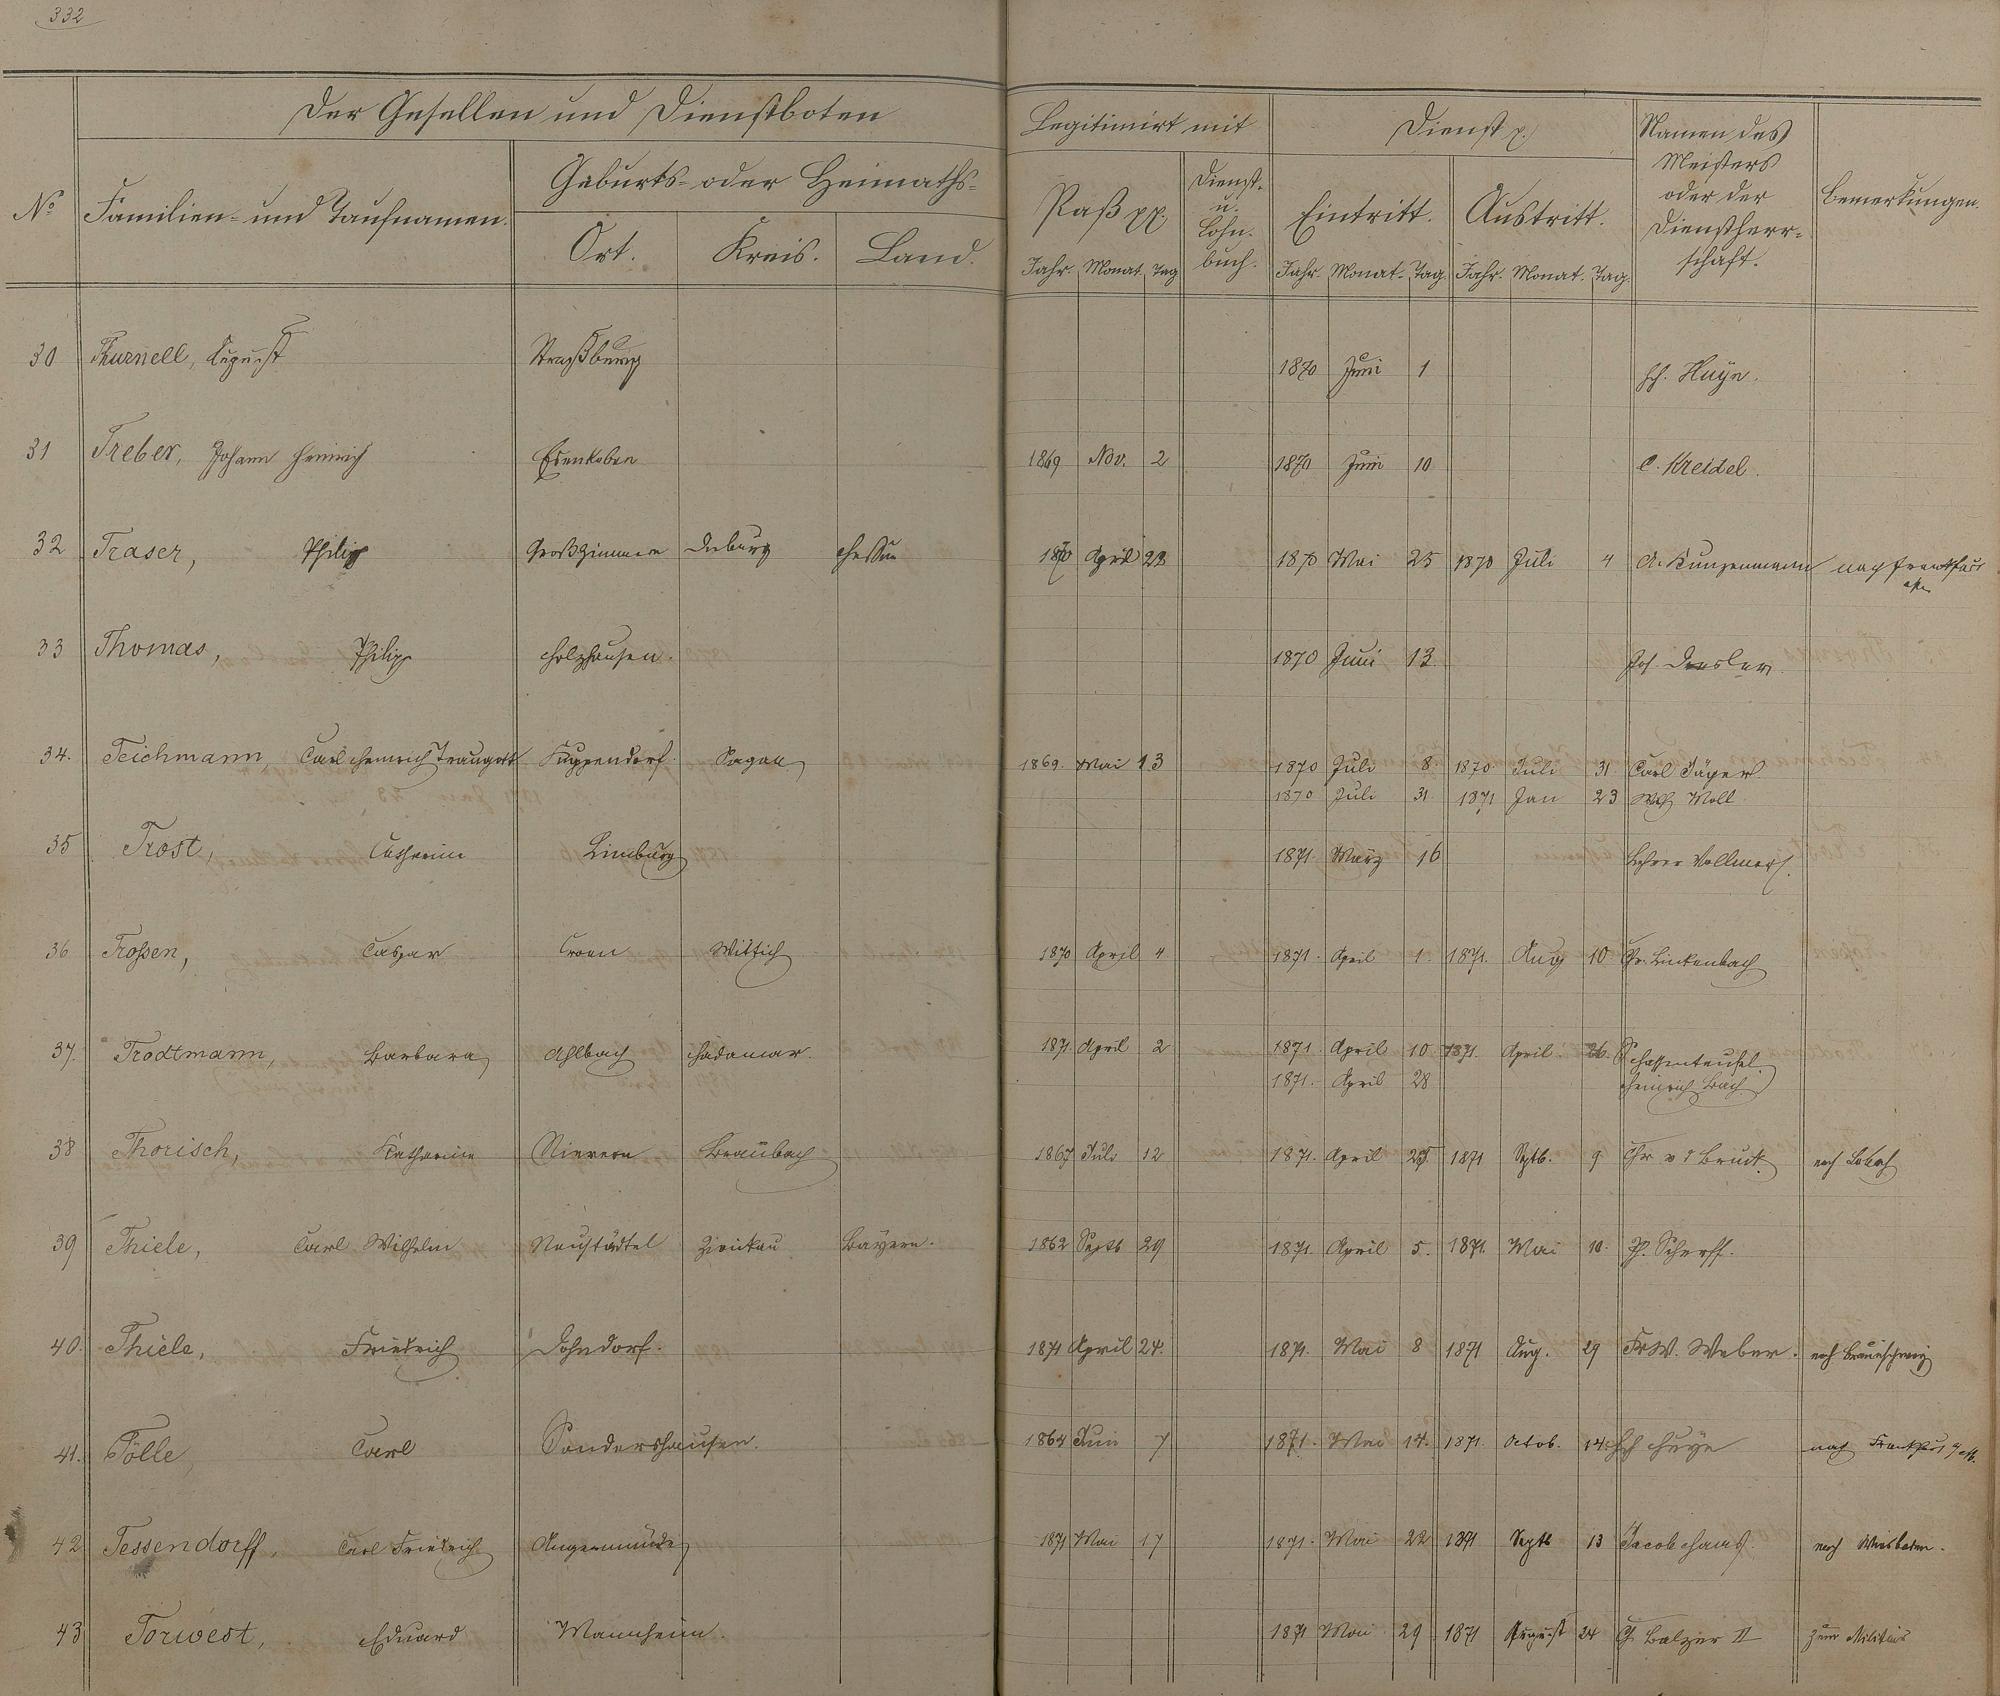 332
Der Gesellen und Dienstboten
Legitimirt mit
Dienst p.
Namen des
Meisters
oder der
Dienstherr-
schaft.
Bemerkungen.
No
Familien- und Taufnamen.
Geburts- oder Heimaths-
Ort. Kreis. Land.
Paß pp.
Dienst-
u.
Lohn-
buch.
Eintritt. Austritt.
Jahr. Monat. Tag Jahr. Monat. Tag. Jahr. Monat. Tag.
30 Thurnell, August Straßburg 1870 Juni 1 Hch. Huÿn.
31 Treber, Johann Heinrich Edenkoben 1869 Nov. 2 1870 Juni 10 C. Kreidel.
32 Traser, Philipp Großzimmern Dieburg Hessen 1870 April 22 1870 Mai 25 1870 Juli 4 A. Kunzenmann nach Frankfurt
33 Thomas, Philipp Holzhausen. 1870 Juni 13 Joh. Dresler.
34. Teichmann, Carl Heinrich Traugott Kuppendorf. Sagan 1869 Mai 13 1870 Juli 8 1870 Juli 31 Carl Jäger.
1870 Juli 31 1871 Jan 23 Wilh Moll
35 Trost, Catharine Limburg 1871 März 16 Lehrer Vollmer.
36 Troßen, Caspar Croen Wittlich 1870 April 4 1871. April 1. 1871. Aug 10 Chr. Linkenbach
37. Trodtmann, Barbara Ahlbach Hadamar. 1871 April 2 1871. April 10 1871. April. 26. Schaffenteufel.
1871. April 28 Heinrich Bach.
38 Thorisch, Katharine Nievern Braubach 1867 Juli 12 1871. April 25 1871 Septb. 9 Chr v d Bruck
39 Thiele, Carl Wilhelm Neustädtel Zwickau Bayern. 1862 Septb 29 1871. April 5. 1871. Mai 10. Ph. Scherff.
40. Thiele, Friedrich Dohndorf. 1871 April 24. 1871. Mai 8 1871 Aug. 29 Fr W. Weber. nach Braunschweig
41. Tölle, Carl Sondershausen. 1864 Juni 7 1871. Mai 14. 1871. Octob. 14. Hch Huÿn nach Frankfurt a/M.
42 Tessendorff, Carl Friedrich Angermünde 1871 Mai 17 1871. Mai 22 1871 Septb 13 Jacob Haas. nach Wiesbaden.
43 Torwest, Eduard Mannheim. 1871 Mai 29 1871 August 24 G. Balzer II zum Militair